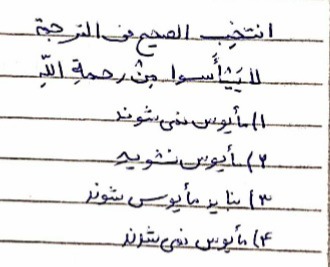 انتخِب الصحیح فی الترجمة
لا یَیْأَسوا مِنْ رحمةِ اللّهِ
۱) مأیوس نمی شوند
۲) مأیوس نشوید
۳) نباید مأیوس شوند
۴) مأیوس نمی شدند